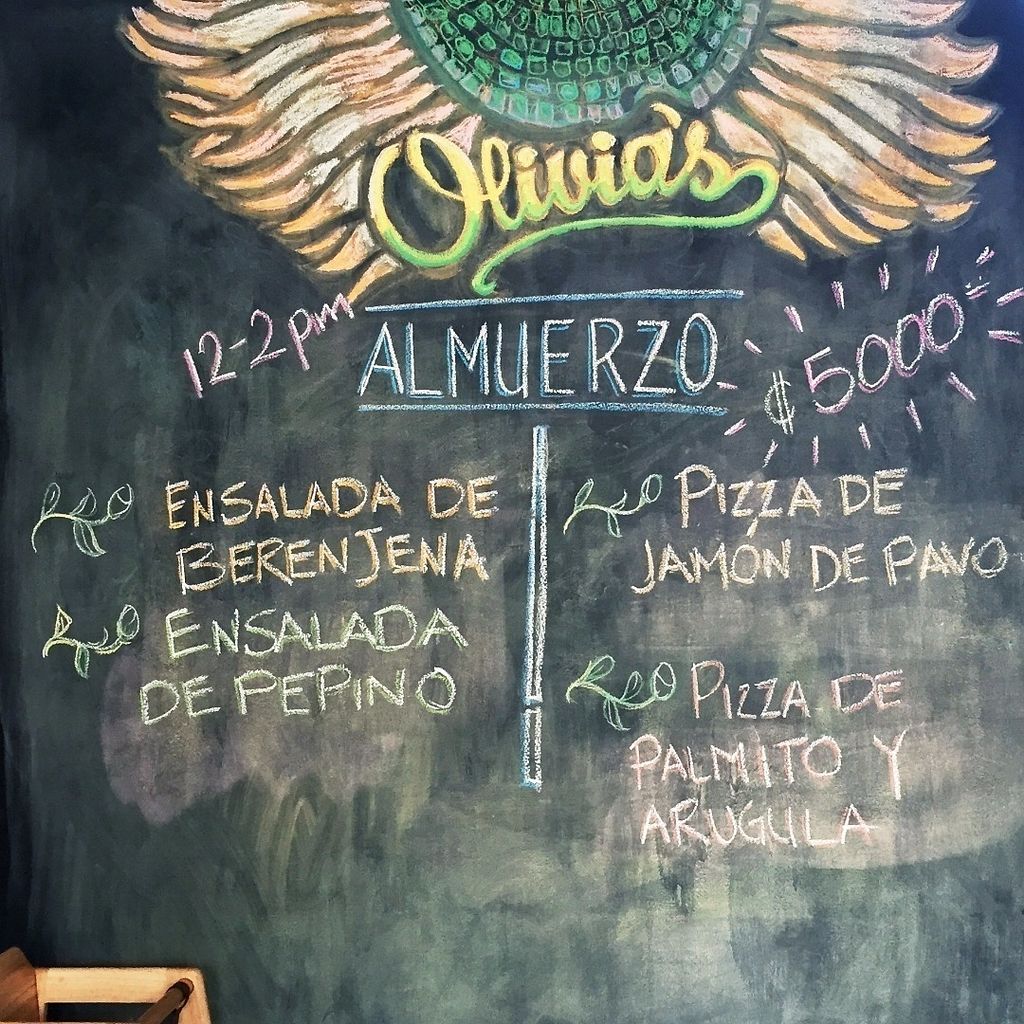 Olivia's
12-2pm
ALMUERZO
₡5000
ENSALADA DE
BERENJENA
ENSALADA
DE PEPINO
PIZZA DE
JAMÓN DE PAVO
PIZZA DE
PALMITO Y
ARUGULA